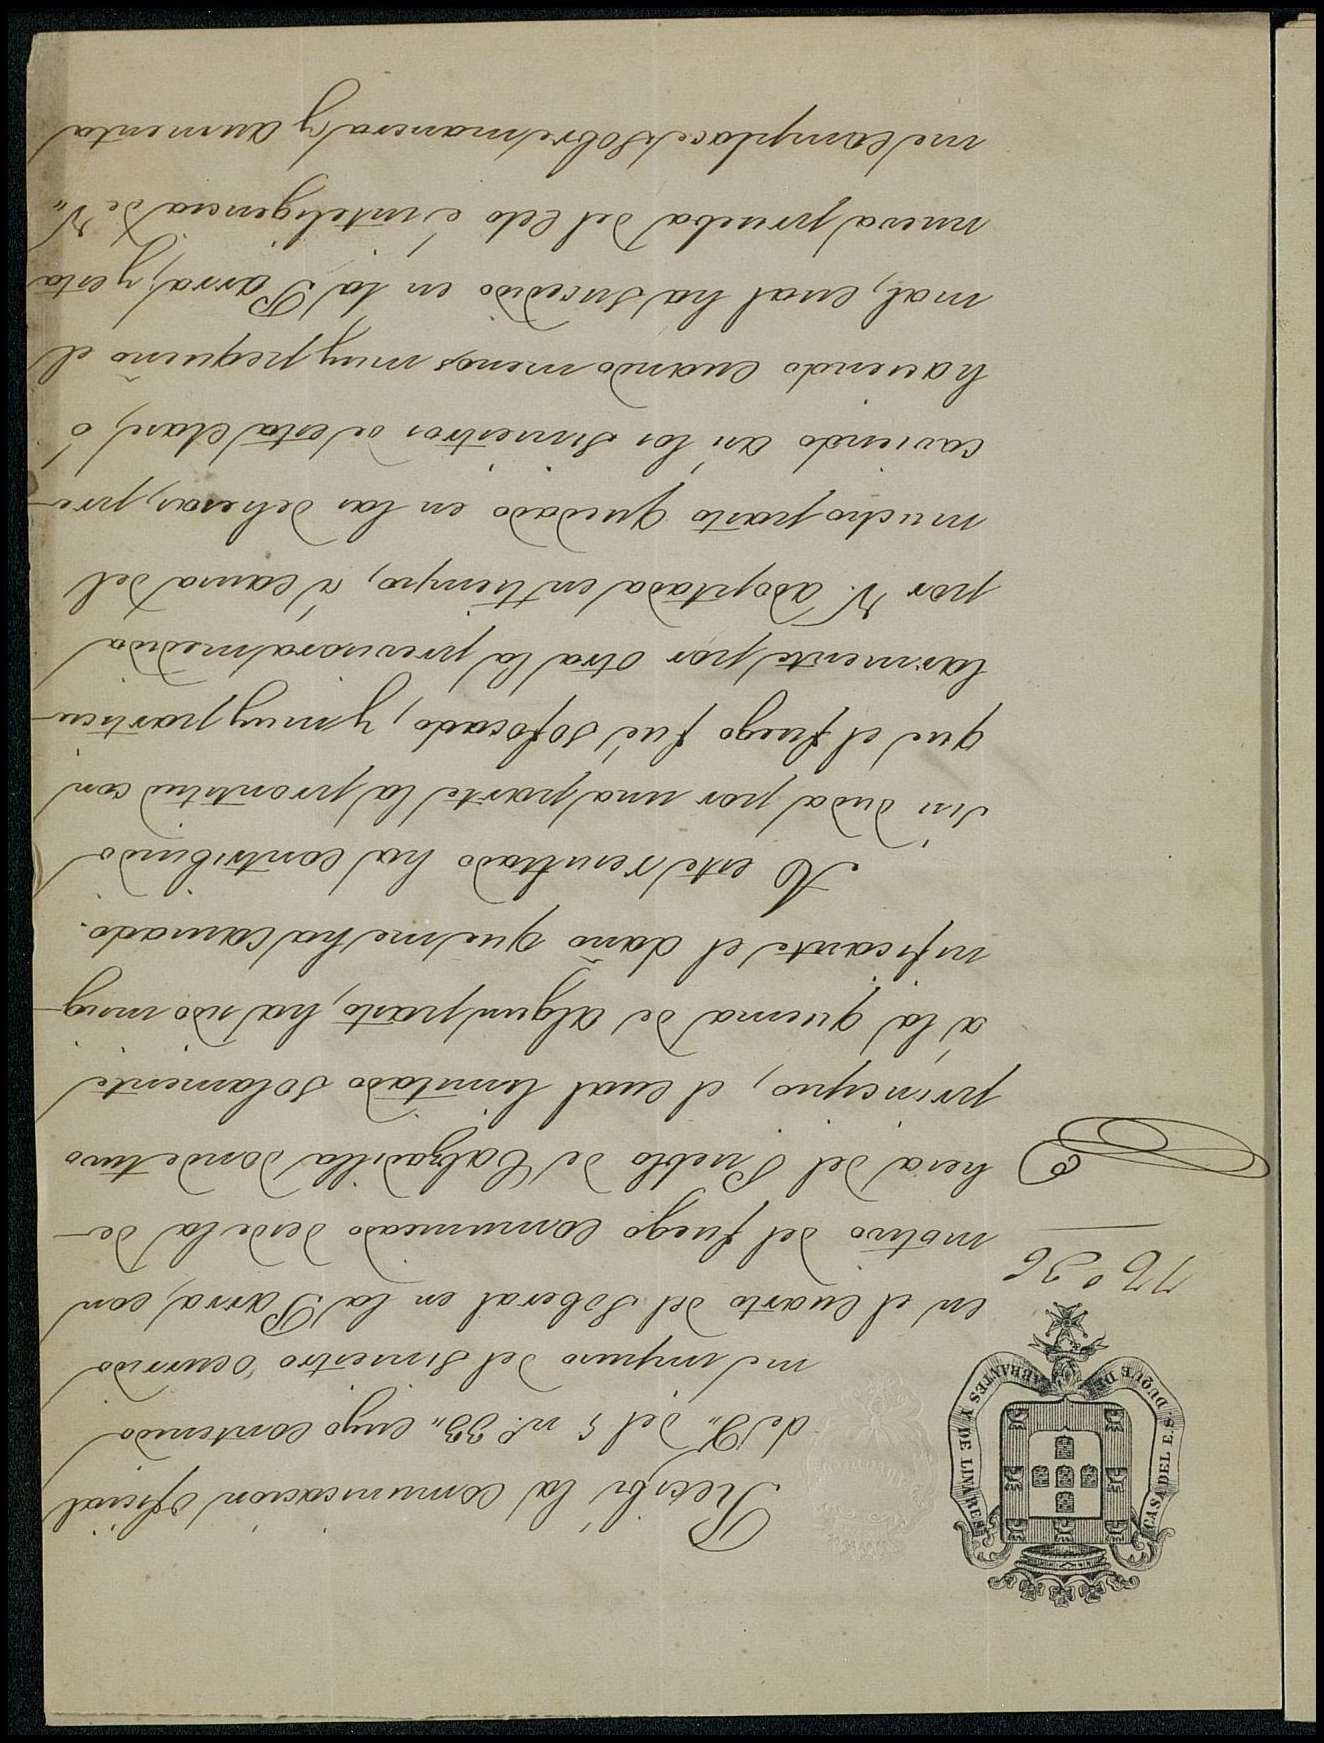 CASA DEL E.S. DUQUE DE ABRANTES Y DE LINARES
N.º 36
Recibí la comunicacion oficial
de V,, del 5 n.º 33,, cuyo contenido
me impuso del siniestro ocurrido
en el cuarto del Soberal en la Parra, con
motivo del fuego comunicado desde la de-
hesa del Pueblo de Calzadilla donde tuvo
principio, el cual limitado solamente
á la quema de algun pasto, ha sido insig-
nificante el daño que me ha causado.
A este resultado ha contribuido
sin duda por una parte la prontitud con
que el fuego fué sofocado, y muy particu-
larmente por otra la previsora medida
por V. adoptada en tiempo, á causa del
mucho pasto quedado en las dehesas, pre-
caviendo asi los siniestros de esta clase, ó
haciendo cuando menos muy pequeño el
mal, cual ha sucedido en la Parra; y esta
nueva prueba del celo é inteligencia de V,,
me complace sobre manera y aumenta